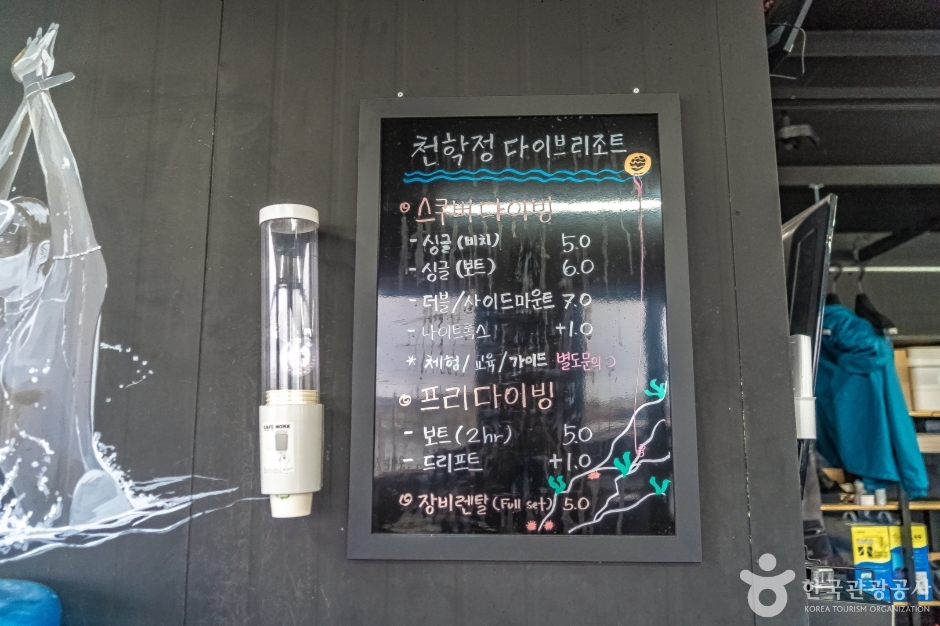 천학정 다이브리조트
스쿠버다이빙
- 싱글 (비치) 5.0
- 싱글 (보트) 6.0
- 더블/사이드마운트 7.0
- 나이트록스 +1.0
* 체험/교육/가이드 별도문의
프리다이빙
- 보트 (2hr) 5.0
- 드리프트 +1.0
장비렌탈 (Full set) 5.0
한국관광공사
KOREA TOURISM ORGANIZATION